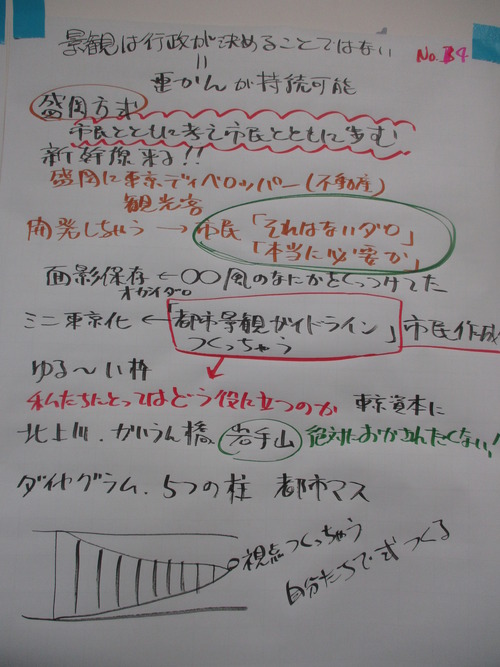 景観は行政が決めることではない
No.B4
||
かんが持続可能
盛岡方式
市民とともに考え市民とともに歩む
新幹線来る!!
盛岡に東京ディベロッパー(不動産)
観光客
開発しちゃう → 市民「それはないダロ」
「本当に必要か」
面影保存 ← ○○風のなにかをくっつけてた
オカイダロ
ミニ東京化 ← 「都市景観ガイドライン」市民作成
つくっちゃう
ゆる〜い枠
私たちにとってはどう役に立つのか 東京資本に
北上川、かいうん橋 岩手山 絶対におかされたくない!
ダイヤグラム、5つの柱 都市マス
視点つくっちゃう
自分たちで式つくる